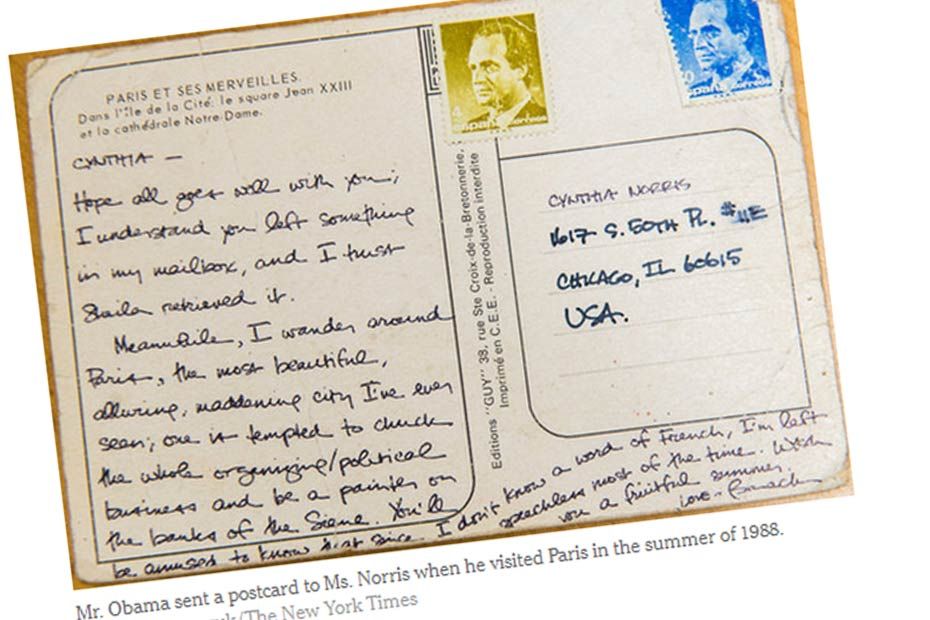 PARIS ET SES MERVEILLES.
Dans l'Île de la Cité: le square Jean XXIII
et la cathédrale Notre-Dame.
CYNTHIA —
Hope all goes well with you;
I understand you left something
in my mailbox, and I trust
Shaila retrieved it.
Meanwhile, I wander around
Paris, the most beautiful,
alluring, maddening city I've ever
seen; one is tempted to chuck
the whole organizing/political
business and be a painter on
the banks of the Siene. You'll
be amused to know that since I don't know a word of French, I'm left
speechless most of the time. Wish
you a fruitful summer.
Love - Barack
Editions "GUY" 38, rue Ste Croix-de-la-Bretonnerie,
Imprimé en C.E.E. - Reproduction interdite
4
españa correos
españa correos
CYNTHIA NORRIS
1617 S. 50TH PL. #11E
CHICAGO, IL 60615
USA.
Mr. Obama sent a postcard to Ms. Norris when he visited Paris in the summer of 1988.
/The New York Times